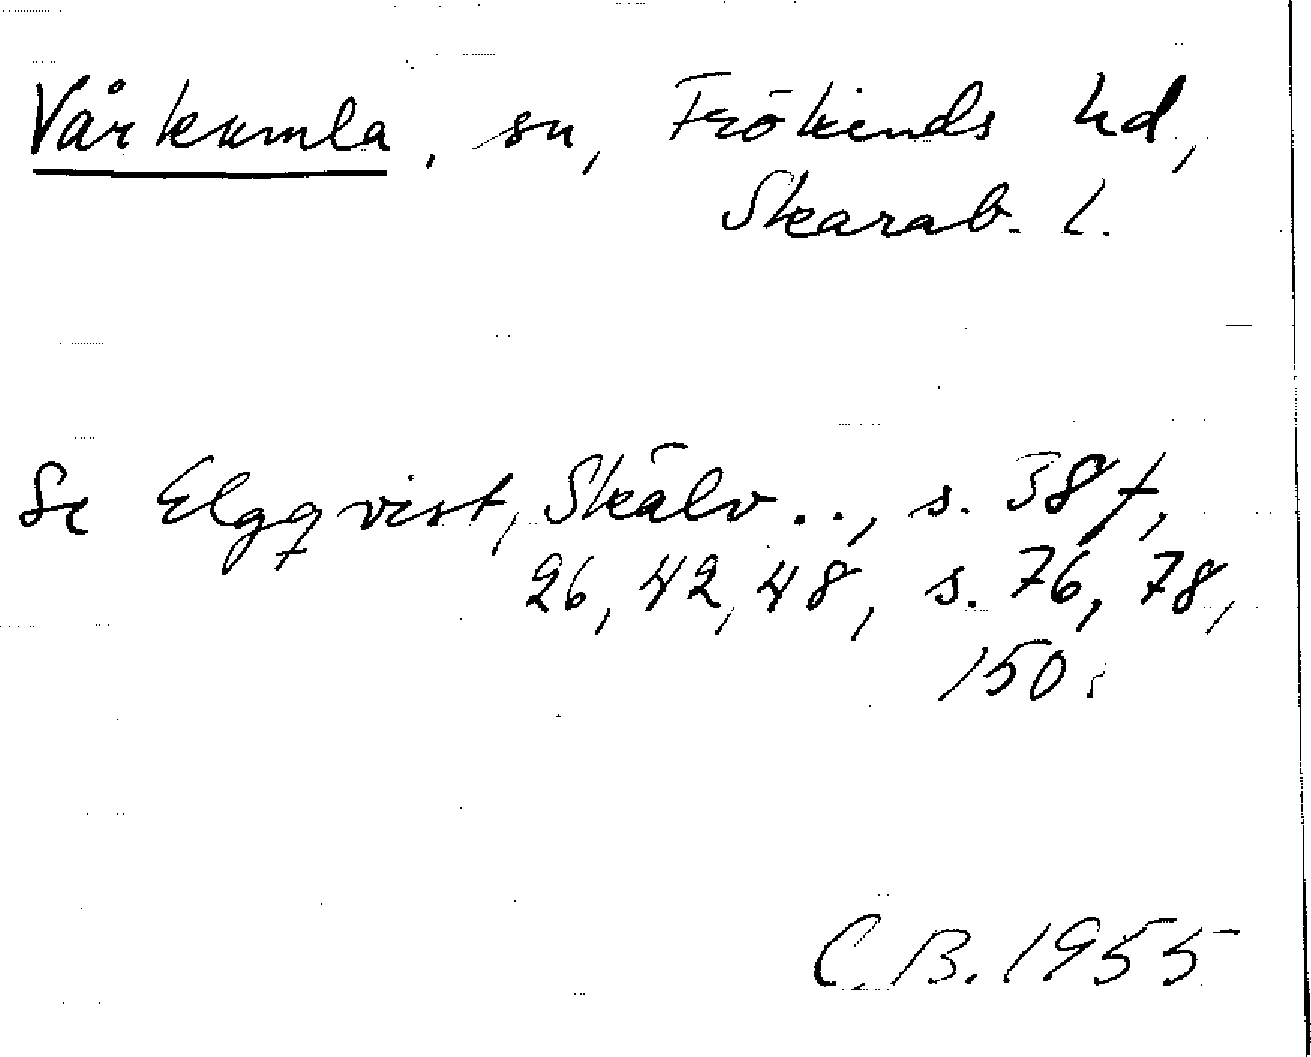 Vårkumla, sn, Frökinds hd,
Skarab. l.
Se Elgqvist, Skälv . ., s. 38 f,
26, 42, 48, s. 76, 78,
150.
C.B. 1955